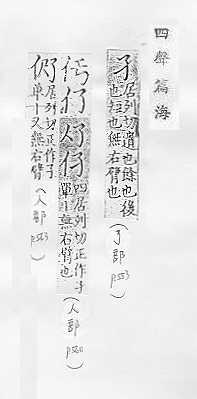 四聲篇海
孑居列切遺也餘也後
也短也無右臂也
(了部 p553)
四居列切正作孑
單也無右臂也
(人部
居列切正作孑
單也又無右臂
(人部